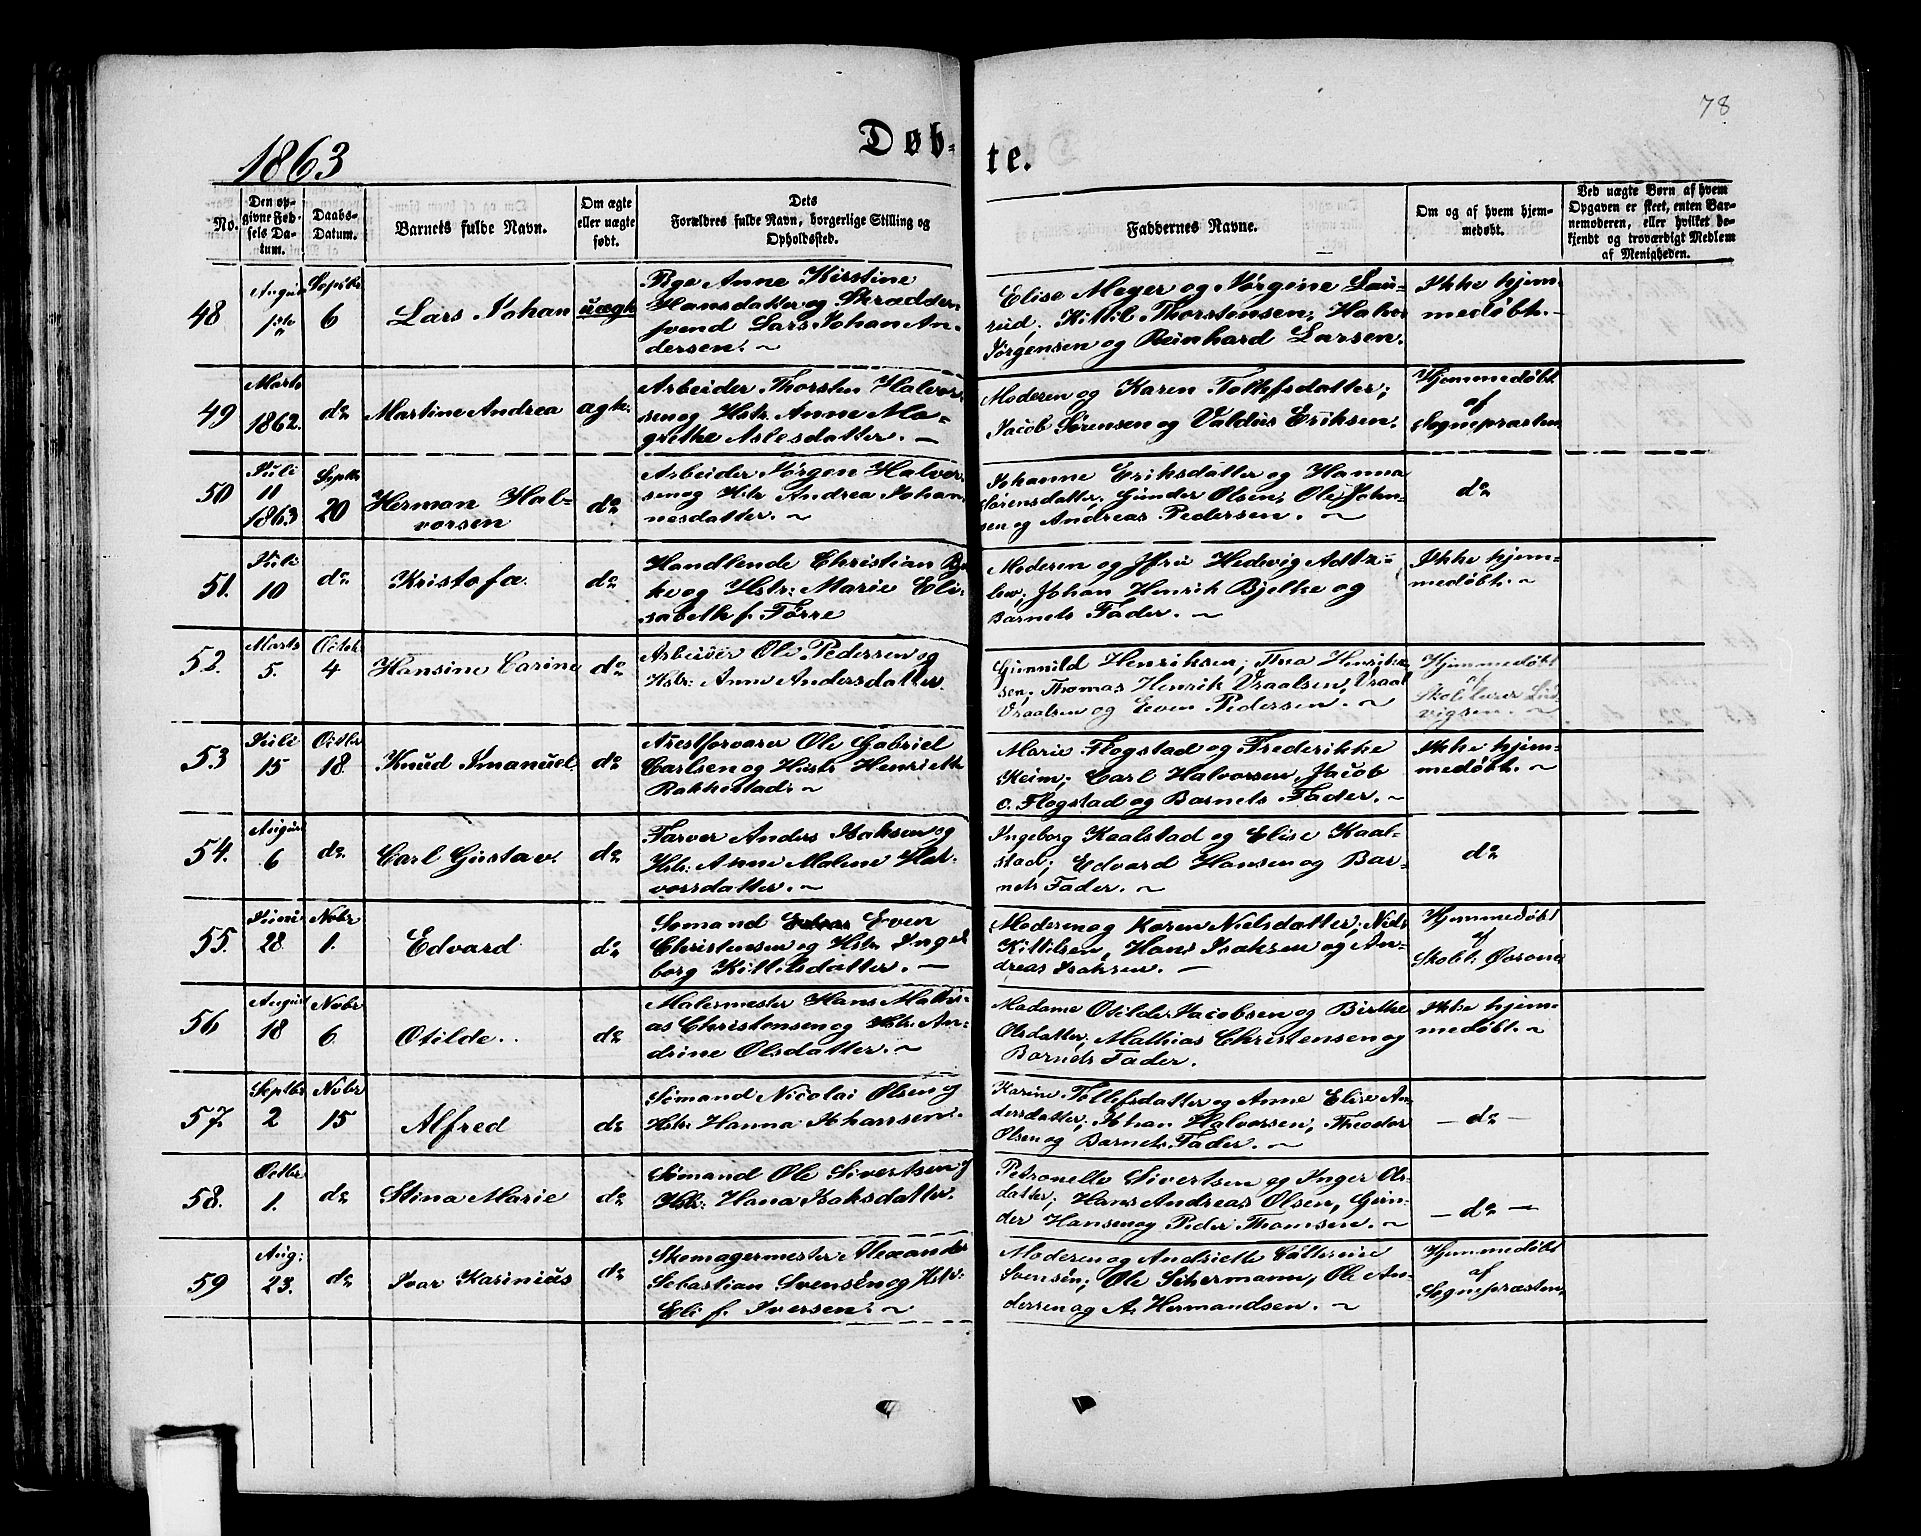 78
1863
Døb-
te.
No.
Den op-
givne Fød-
sels Da-
tum.
Daabs-
Datum.
Barnets fulde Navn.
Om ægte
eller uægte
født.
Dets
Forældres fulde Navn, borgerlige Stilling og
Opholdssted.
Faddernes Navne.
Om og af hvem hjem-
medøbt.
Ved uægte Børn af hvem
Opgaven er skeet, enten Bar-
nemoderen, eller hvilket be-
kjendt og troværdigt Medlem
af Menigheden.
48
August
6
Lars Johan
uægte
Pige Anne Kirstine
Hansdatter og Skrædder-
svend Lars Johan An-
dersen. ~
Elise Meyer og Jørgine Lau-
rud; Kittil Thorstensen; Halvor
Jørgensen og Reinhard Larsen.
Ikke hjem-
medøbt.
49
Marts
1862.
do
Martine Andrea
ægte:
Arbeider Thorsten Halvor-
sen og Hstr. Anne Ma-
grethe Aslesdatter. —
Moderen og Karen Tolkfsdatter;
Jacob Sørensen og Valdus Eriksen.
Hjemmedøbt
af
Sognepræsten
50
Juli
11
1863
Septbr
20
Herman Hal-
vorsen
do
Arbeider Jørgen Halvor-
sen og Hstr Andrea Johan-
nesdatter. ~
Johanne Eriksdatter og Hanna
Sørensdatter; Gunder Olsen; Ole John-
sen og Andreas Pedersen. ~
do
51.
Juli
10
do
Kristofa
do
Handlende Christian Bjel-
ke og Hstr: Marie Eli-
sabeth f. Førre
Moderen og Jfru Hedvig
Johan Henrik Bjelke og
Barnets Fader. ~
Ikke hjem-
medøbt. ~
52.
Marts
5.
Octobr
4
Hansine Carine
do
Arbeider Ole Pedersen og
Hstr: Anne Andersdatter.
Gunnild Henriksen; Tina Henrik-
sen; Thomas Henrik Vraalsen, Vraal
Vraalsen og Even Pedersen. ~
Hjemmedøbt
af
Skolelærer Lud-
vigsen. ~
53
Juli
15
Octbr
18
Knud Imanuel
do
Arestforvarer Ole Gabriel
Carlsen og Hustr Henriette
Rakkestad. ~
Marie Flogstad og Frederikke
Keim; Carl Halvorsen, Jacob
o. Flogstad og Barnets Fader. ~
Ikke hjem-
medøbt. ~
54.
August
6
do.
Carl Gustav.
do
Farver Anders Isaksen og
Hstr: Anne Malene Hal-
vorsdatter. ~
Ingeborg Kaalstad og Elise Kaal-
stad; Edvard Hansen og Bar-
nets Fader. ~
do
55.
Juni
28
Novbr
1.
Edvard
do
Sømand Even
Christensen og Hstr Inge-
borg Kittilsdatter. —
Moderen og Karen Nielsdatter; Niels
Kittilsen, Hans Isaksen og An-
dreas Isaksen. —
Hjemmedøbt
af
56
August
18
Novbr
6
Otilde.
do
Malermester Hans Mathi-
as Christensen og Hstr. An-
drine Olsdatter. ~
Madame Otilde Jacobsen og Birthe
Olsdatter; Mathias Christensen og
Barnets Fader.
Ikke hjem-
medøbt. ~
57.
Septbr
2
Novbr
15
Alfred
do
Sømand Nicolai Olsen og
Hstr: Hanna Johansen.
Karine Tollefsdatter og Anne Elise An-
dersdatter; Johan Halvorsen; Theodor
Olsen og Barnets Fader. ~
— do —
58.
Octbr
1.
do
Stina Marie
do
Sømand Ole Sivertsen og
Hstr: Hana Isaksdatter.
Petronelle Sivertsen og Inger Ols-
datter; Hans Andreas Olsen, Gun-
der Hansen og Peder Thomsen. ~
— do —
59
Aug:
23.
do
Ivar Karinius
do
Skomagermester Alexander
Sebastian Svensén og Hstr:
Eli f. Iversen. ~
Moderen og Andriette Cathrine
Svensén; Ole Schermann, Ole An-
dersen og A. Hermandsen. ~
Hjemmedøbt
af
Sognepræsten